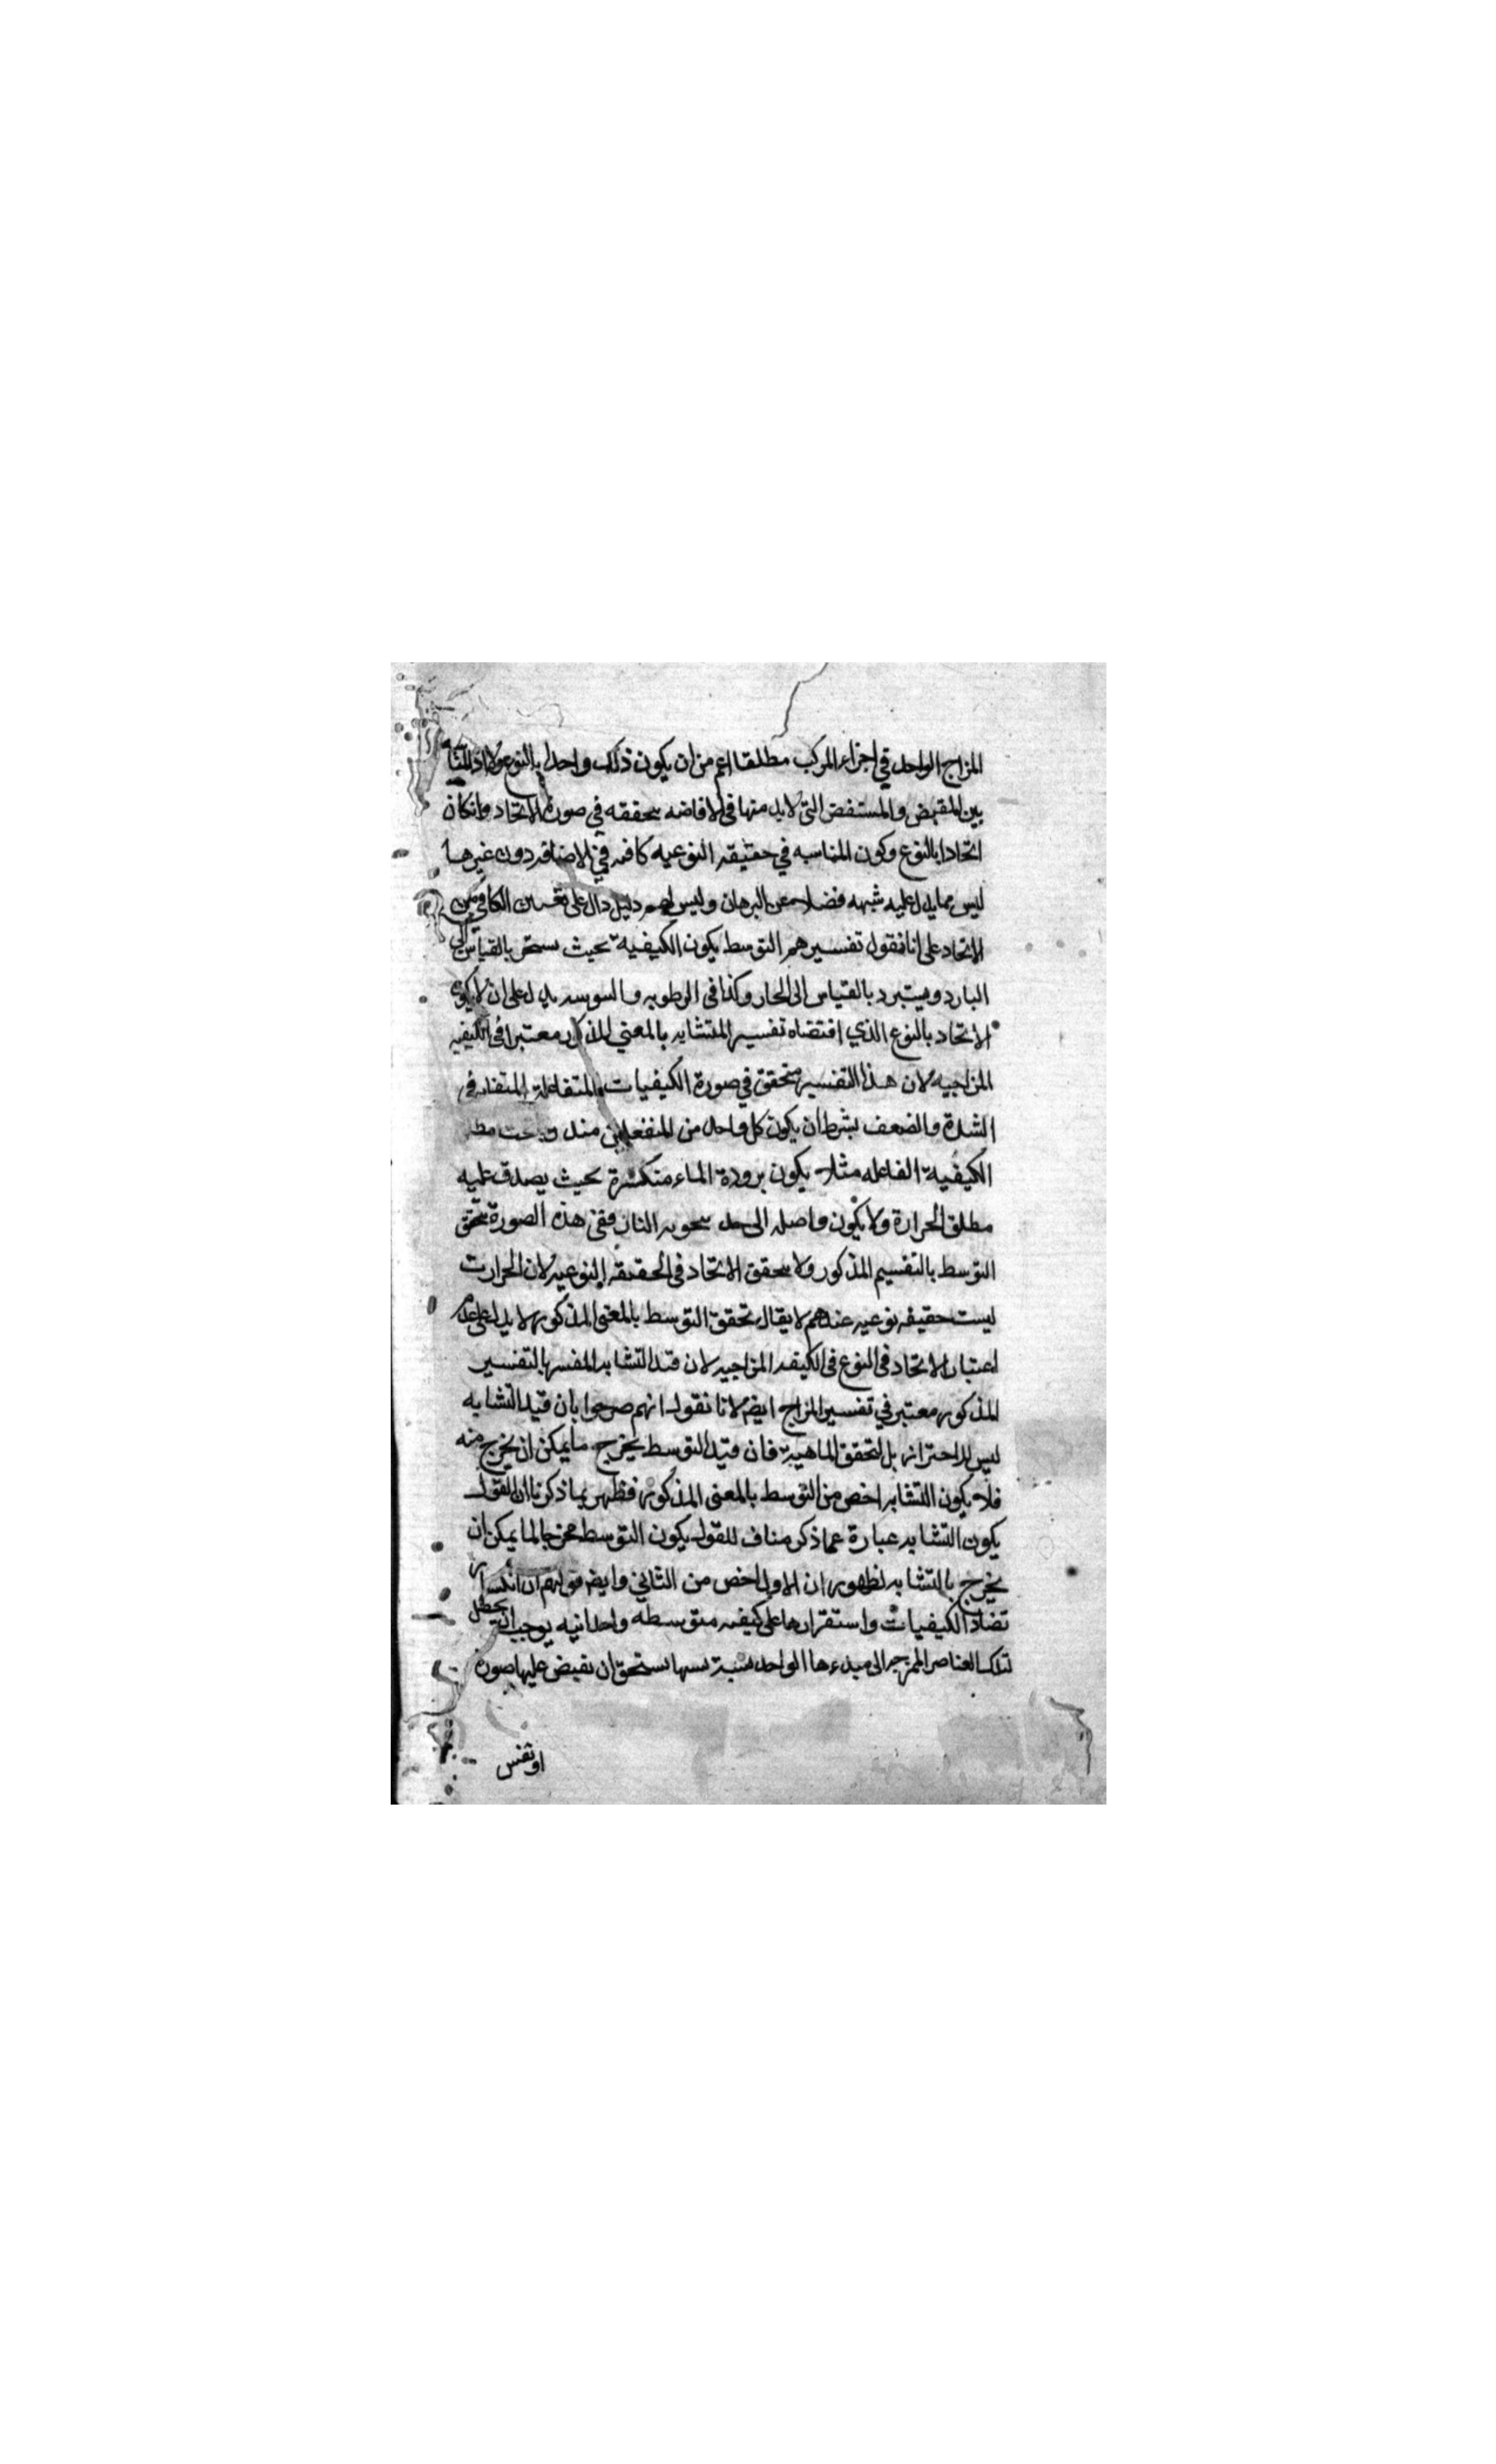 المزاج الواحد في اجزاء المركب مطلقا اعم من ان يكون ذلك واحدا بالنوع ولا اذ المناسبة
بين المقيض والمستفيض التى لابد منها فى الافاضه متحققه في صورة الاتحاد وانكان
اتحادا بالنوع وكون المناسبه في حقيقته النوعيه كافيه في الاضافه دون غيرها
ليس مما يدل عليه شبهه فضلا عن البرهان وليس لهم دليل دال على تعيين الكافي من
الاتحاد على انا نقول تفسيرهم التوسط بكون الكيفية بحيث يستحر بالقياس الى
البارد ويستبرد بالقياس الى الحار وكذا فى الرطوبه واليبوسه يدل على ان لا يكون
الاتحاد بالنوع الذي اقتضاه تفسير المتشابه بالمعني المذكور معتبرا فى الكيفيه
المزاجيه لان هذا التفسير متحقق في صورة الكيفيات المتفاعلة المتفاوته فى
الشدة والضعف بشرط ان يكون كل واحد من المنفعلين مندرجا تحت مطلق
الكيفية الفاعله مثلا يكون برودة الماء منكسرة بحيث يصدق عليه
مطلق الحرارة ولا يكون واصله الى حد سخونه النار ففى هذه الصورة تحقق
التوسط بالتفسير المذكور ولا يتحقق الاتحاد فى الحقيقة النوعيه لان الحرارت
ليست حقيقه نوعيه عندهم لا يقال تحقق التوسط بالمعنى المذكور لا يدل على عدم
اعتبار الاتحاد فى النوع فى الكيفيه المزاجيه لان قيد التشابه المفسر بالتفسير
المذكور معتبر في تفسير المزاج ايضا لانا نقول انهم صرحوا بان قيد التشابه
ليس للاحتراز بل لتحقق الماهية فان قيد التوسط يخرج ما يمكن ان يخرج منه
فلا يكون التشابه اخص من التوسط بالمعنى المذكور فظهر بما ذكرنا ان القول
بكون التشابه عبارة عما ذكر مناف للقول بكون التوسط مخرجا لما يمكن ان
يخرج بالتشابه لظهور ان الاول اخص من الثاني وايضا قولهم ان انكسار
تضاد الكيفيات واستقرارها على كيفيه متوسطه واحدانيه يوجب ان يحصل
لتلك العناصر الممتزجه الى مبدءها الواحد نسبة بسببها يستحق ان يفيض عليها صورة
او نفس